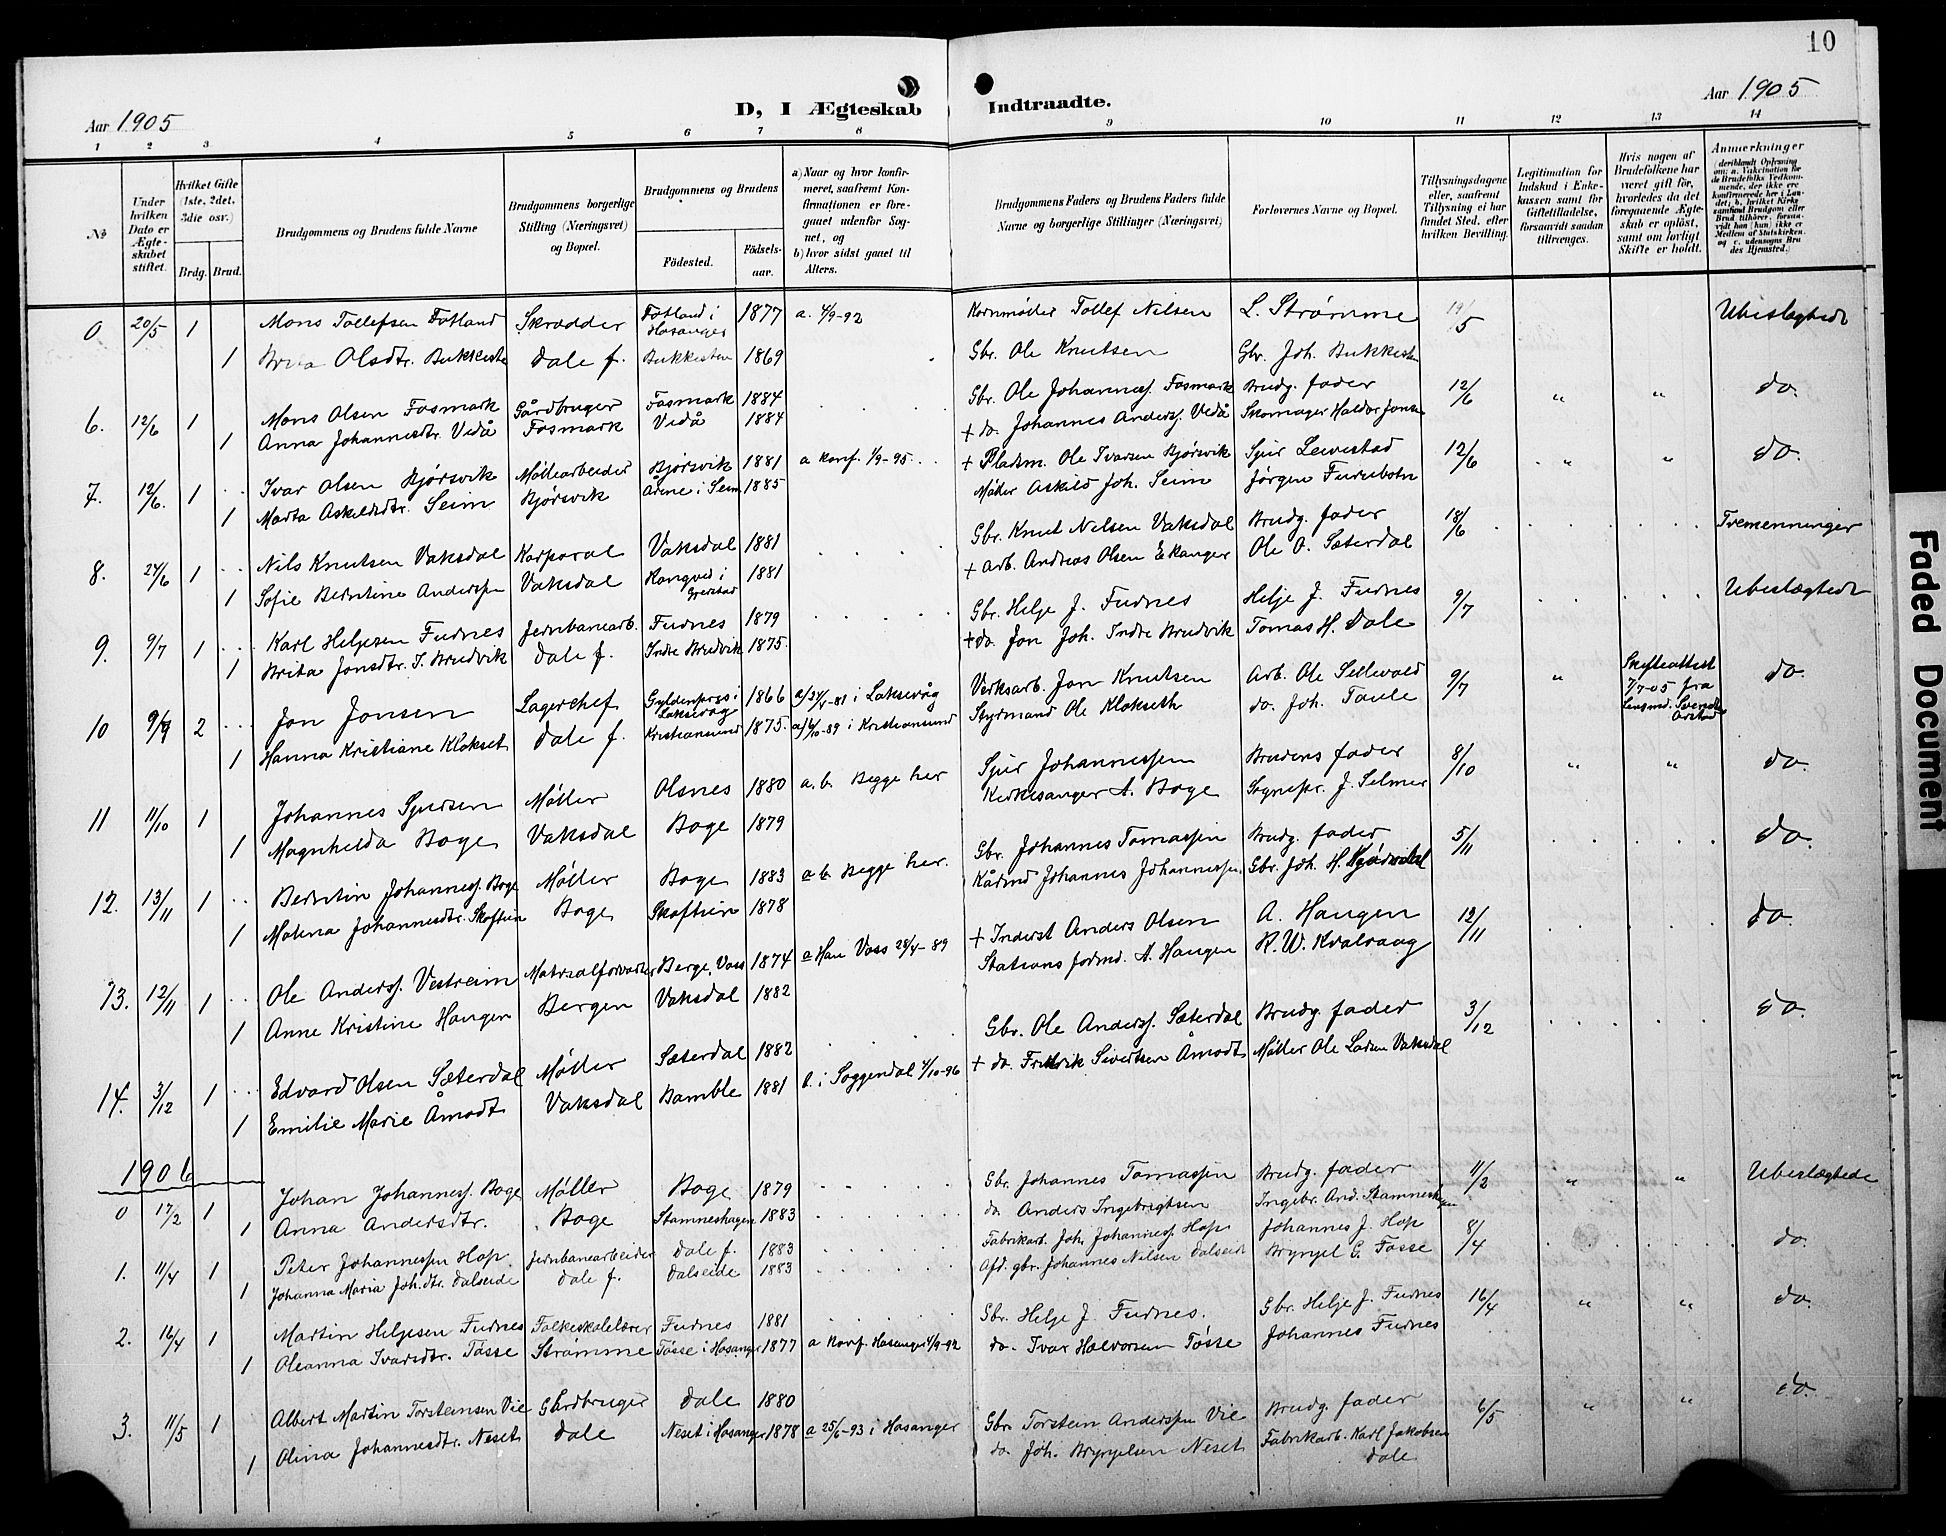 10
Aar 1905
D, I Ægteskab Indtraadte.
Aar 1905
1 2 3 4 5 6 7 8 9 10 11 12 13 14
№
Under hvilken Dato er Ægteskabet stiftet.
Hvilket Gifte (1ste, 2det, 3die osv.)
Brdg. Brud.
Brudgommens og Brudens fulde Navne
Brudgommens borgerlige Stilling (Næringsvei) og Bopæl.
Brudgommens og Brudens
Födested.
Födselsaar.
a) Naar og hvor konfirmeret, saafremt Konfirmationen er foregaaet udenfor Sognet, og
b) hvor sidst gaaet til Alters.
Brudgommens Faders og Brudens Faders fulde Navne og borgerlige Stillinger (Næringsvei)
Forlovernes Navne og Bopæl.
Tillysningsdagene eller, saafremt Tillysning ei har fundet Sted, efter hvilken Bevilling.
Legitimation for Indskud i Enkekassen samt for Giftetilladelse, forsaavidt saadan tiltrænges.
Hvis nogen af Brudefolkene har været gift før, hvorledes da det foregaaende Ægteskab er oplöst, samt om lovligt Skifte er holdt.
Anmerkninger
0 20/5 1 Mons Tollefsen Fotland Skrædder Fotland i Hosanger 1877 a. 4/9-92 Kornmøller Tollef Nilsen L. Strømme 19/5 Ubeslægtede
1 Brita Olsdtr. Bukkesten Dale f. Bukkesten 1869 Gbr. Ole Knutsen Gbr. Joh. Bukkesten
6. 12/6 1 Mons Olsen Fosmark Gårdbruger Fosmark 1884 Gbr. Ole Johanness. Fosmark Brudg. fader 12/6 " " do.
1 Anna Johannesdtr. Vedå Fosmark Vedå 1884 + do. Johannes Anderss. Vedå Skomager Haldor Jonsen
7. 12/6. 1 Ivar Olsen Bjørsvik Møllearbeider Bjørsvik 1881 a konf. 1/9-95 + Pladsm. Ole Ivarsen Bjørsvik Sjur Leivestad 12/6 " " do.
1 Marta Askildsdtr. Seim Bjørsvik i Seim 1885 Møller Askild Joh. Seim Jörgen Furubotn
8. 24/6 1 Nils Knutsen Vaksdal Korporal Vaksdal 1881 Gbr. Knut Nilsen Vaksdal Brudg. fader 18/6 Tremenninger
1 Sofie Berntine Anderssen Vaksdal i 1881 + Arb. Andreas Olsen Ekanger Ole O. Sæterdal
9. 9/7 1 Karl Helgesen Furnes Jernbanearb. Furnes 1879 Gbr. Helje J. Furnes Helje J. Furnes 9/7 Ubeslægtede
1 Brita Jonsdtr. I. Bruvik Dale f. Indre Bruvik 1875. + do. Jon Joh. Indre Bruvik Tomas H. Dale
10 9/7 2 Jon Jonsen Lagerchef Gyldenpris i Laksevåg 1866 a) 24/4-81 i Laksevåg Verksarb. Jon Knutsen Arb. Ole Sellevold 9/7 " Skifteattest 7/7-05 fra Lensmd. do.
1 Hanna Kristiane Klokset Dale f. Kristiansund 1875. a) 6/10-89 i Kristiansund Styrmand Ole Klokseth do. Joh. Toule
11 11/10 1 Johannes Sjursen Møller Olsnes 1880 a. b. Begge her Sjur Johannessen Brudens fader 8/10 " " do.
1 Magnhilda Boge Vaksdal Boge 1879 Kirkesanger A. Boge Sognepr. J. Selmer
12. 13/11 1 Berntin Johanness. Boge Møller Boge 1883 a b. Begge her. Gbr. Johannes Tomassen Brudg. fader 5/11 do.
1 Malena Johannesdtr. Skoftun Boge Skoftun 1878 Kårmd Johannes Johannessen. Gbr. Joh. H.
13. 12/11 1 Ole Anderss. Vestreim Matrialforvalter Berge, Voss 1874 a Han Voss 28/4-89 + Inderst Anders Olsen A. Haugen 12/11 do.
1 Anne Kristine Haugen Bergen Vaksdal 1882 Stationsformd. A. Haugen R. W. Kvalvaag
14. 3/12 1 Edvard Olsen Sæterdal Møller Sæterdal 1882 Gbr. Ole Anderss. Sæterdal Brudg. fader 3/12 do.
1 Emilie Marie Åmodt Vaksdal Bamble 1881 b. i Soggendal 4/10-96 + do. Fredrik Sivertsen Åmodt Møller Ole Larsen Vaksdal
1906
0 17/2 1 Johan Johanness. Boge Møller Boge 1879 Gbr. Johannes Tomassen Brudg. fader 11/2 " " Ubeslægtede
1 Anna Andersdtr. Boge Stamneshagen 1883 do Anders Ingebrigtsen Ingebr. And. Stamneshagen
1. 11/4 1 Peter Johannessen Hop. Jernbanearbeider Dale f. 1883 Fabrikarb. Joh. Johanness Hop Johannes J. Hop 8/4 do.
1 Johanna Maria Joh.dtr. Dalseide Dale f. Dalseide 1883 Afd. gbr. Johannes Nilsen Dalseid Brynjel E. Fosse
2. 16/4 1 Martin Helgesen Furnes Folkeskolelærer Furnes 1881 Gbr. Helje J. Furnes. Gbr. Helje J. Furnes 16/4 " " do.
1 Oleanna Ivarsdtr. Tösse Strömme Tösse i Hosanger 1877 a Konf. Hosanger 4/9-92 do. Ivar Halvorsen Tösse Johannes Furnes
3. 11/5 1 Albert Martin Torsteinsen Vie Gårdbruger Dale 1880 Gbr. Torstein Anderssen Vie Brudg. fader 6/5 " " do.
1 Olina Johannesdtr. Neset Dale Neset i Hosanger 1878 a 25/6-93 i Hosanger do. Joh. Brynjelsen Neset Fabrikarb. Karl Jakobsen Dale
Faded Document